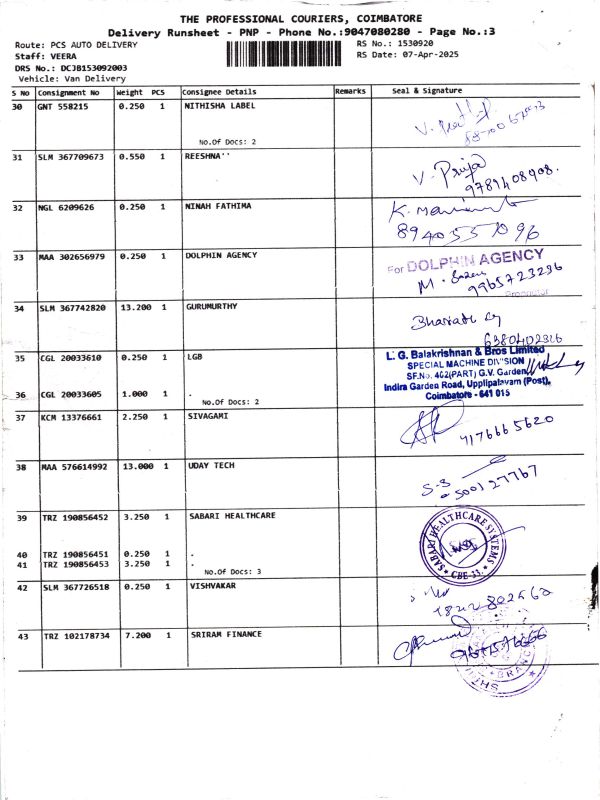 THE PROFESSIONAL COURIERS, COIMBATORE
Delivery Runsheet - PNP - Phone No.:9047080280 - Page No.:3
Route: PCS AUTO DELIVERY
RS No.: 1530920
Staff: VEERA
RS Date: 07-Apr-2025
DRS No.: DCJB153092003
Vehicle: Van Delivery
S No Consignment No Weight PCS Consignee Details Remarks Seal & Signature
30 GNT 558215 0.250 1 NITHISHA LABEL
No.Of Docs: 2
31 SLM 367709673 0.550 1 REESHNA''
V. Priya
9789408908.
32 NGL 6209626 0.250 1 NINAH FATHIMA
K.
8940557096
33 MAA 302656979 0.250 1 DOLPHIN AGENCY
For DOLPHIN AGENCY
M.
9965723296
Proprietor
34 SLM 367742820 13.200 1 GURUMURTHY
Bharath
6380402816
35 CGL 20033610 0.250 1 LGB
L. G. Balakrishnan & Bros Limited
SPECIAL MACHINE DIVISION
SF.No. 402(PART) G.V. Garden
Indira Garden Road, Upplipalayam (Post),
Coimbatore - 641 015
36 CGL 20033605 1.000 1 .
No.Of Docs: 2
37 KCM 13376661 2.250 1 SIVAGAMI
7176665620
38 MAA 576614992 13.000 1 UDAY TECH
S-S
39 TRZ 190856452 3.250 1 SABARI HEALTHCARE
SABARI HEALTHCARE SYSTEMS
CBE-11.
40 TRZ 190856451 0.250 1 .
41 TRZ 190856453 3.250 1 .
No.Of Docs: 3
42 SLM 367726518 0.250 1 VISHVAKAR
43 TRZ 102178734 7.200 1 SRIRAM FINANCE
BRANCH